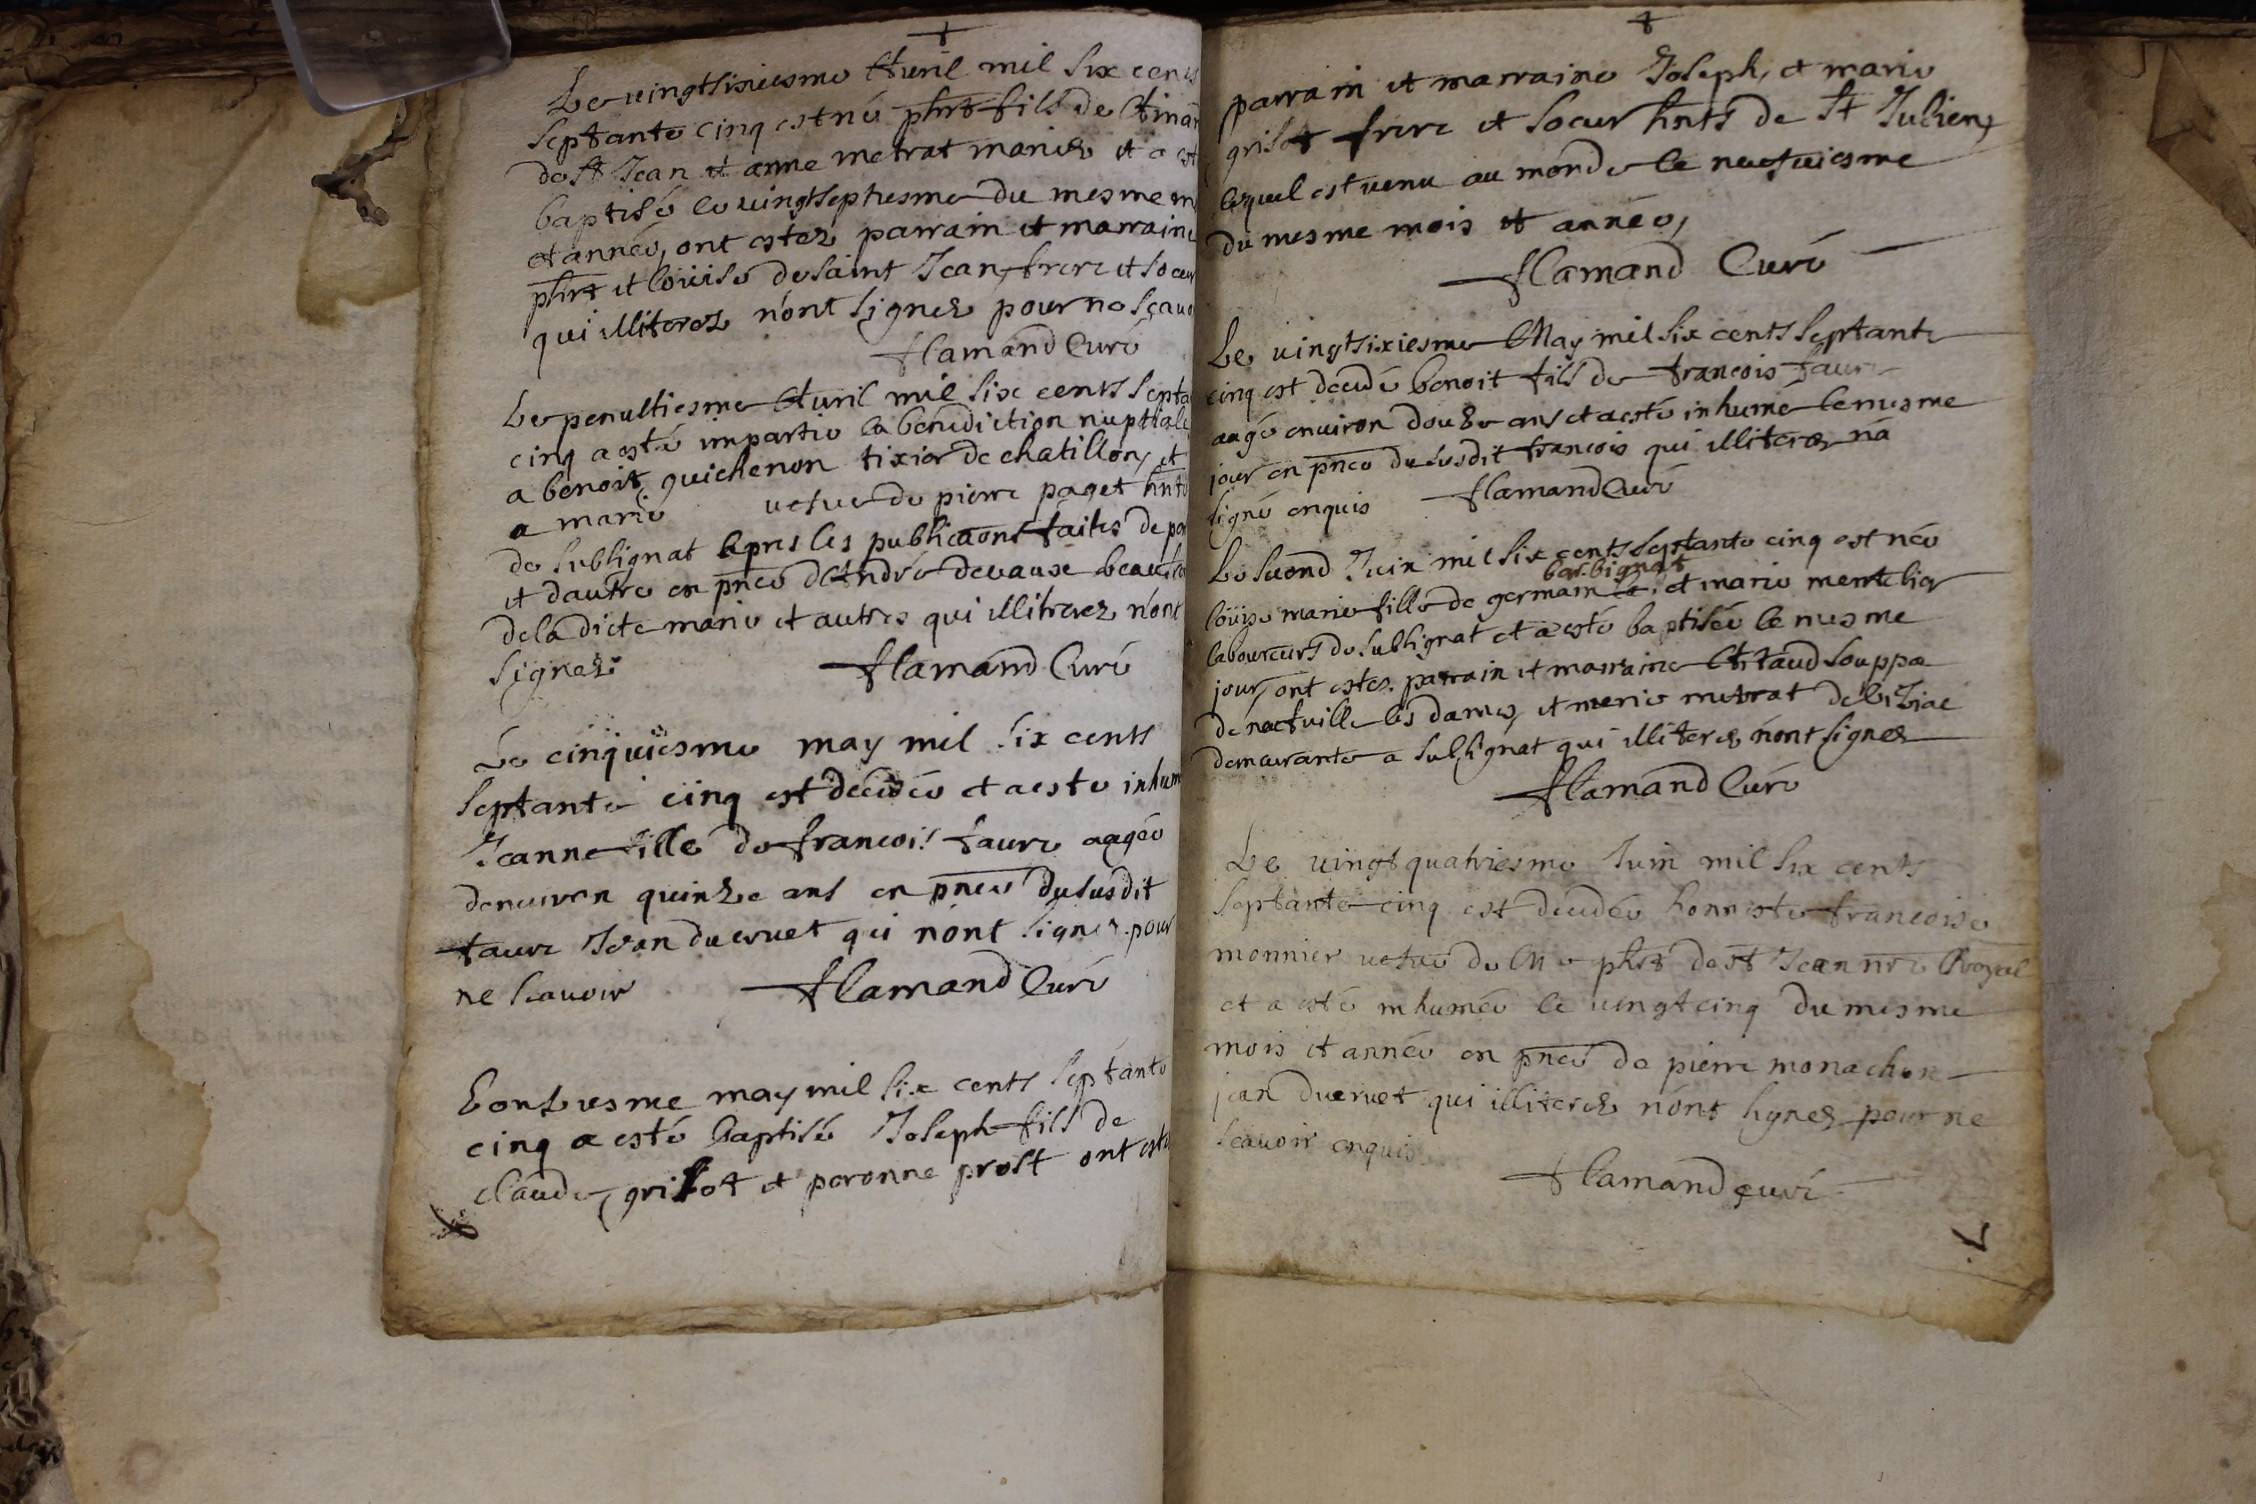 Le vingtsixiesme Auril mil six cents
septante cinq est né phrt fils de
de st Jean et anne metrat mariez et a est
baptisé le vingtseptiesme du mesme m
et année, ont estez parrain et marraine
phrt et loüise de saint Jean, frere et soeur
qui illiterez n'ont signez pour ne sçauo
flamand Curé
Le penultiesme Auril mil six cents septa
cinq a esté impartie la benediction nuptiale
a benoit guichenon tixier de chatillon, et
a marie vefue de pierre paget hnts
de sublignat apres les publicaons faites de par
et dautre en pnce dAndré deuaux beaufre
de la dicte marie et autres qui illiterez n'ont
signez
flamand Curé
Le cinquiesme may mil six cents
septante cinq est decedée et a esté inhum
Jeanne fille de francois faure aagée
denuiron quinze ans en pnce dusus dit
faure Jean ducruet qui nont signez pour
ne scauoir flamand Curé
Lonziesme may mil six cents septante
cinq a esté baptisé Joseph fils de
claude grisot et peronne prost ont esté
parrain et marraine Joseph, et marie
grisot frere et soeur hnts de st Julien,
lequel est venu au monde le neufuiesme
du mesme mois et année,
flamand Curé
Le vingtsixiesme May mil six cents septante
cinq est decedé benoit fils de francois faure
aagé enuiron douze ans et a esté inhumé le mesme
jour en pnce du susdit francois qui illiteré na
signé enquis flamand Curé
Le second Juin mil six cents septante cinq est née
barbignat
loüise marie fille de germain et marie mentelier
laboureurs de sublignat et a esté baptisée le mesme
jour, ont estez parrain et marraine Artaud souppa
de neufuille les dames, et marie metrat de biziac
demeurante a sublignat qui illiterez n'ont signez
flamand Curé
Le vingt quatriesme Juin mil six cents
septante cinq est decedée honneste francoise
monnier vefue de Me phrt de st Jean nre Royal
et a esté inhumée le vingtcinq du mesme
mois et année en pnce de pierre monachon
jean ducruet qui illiterez n'ont signez pour ne
scauoir enquis
flamand curé